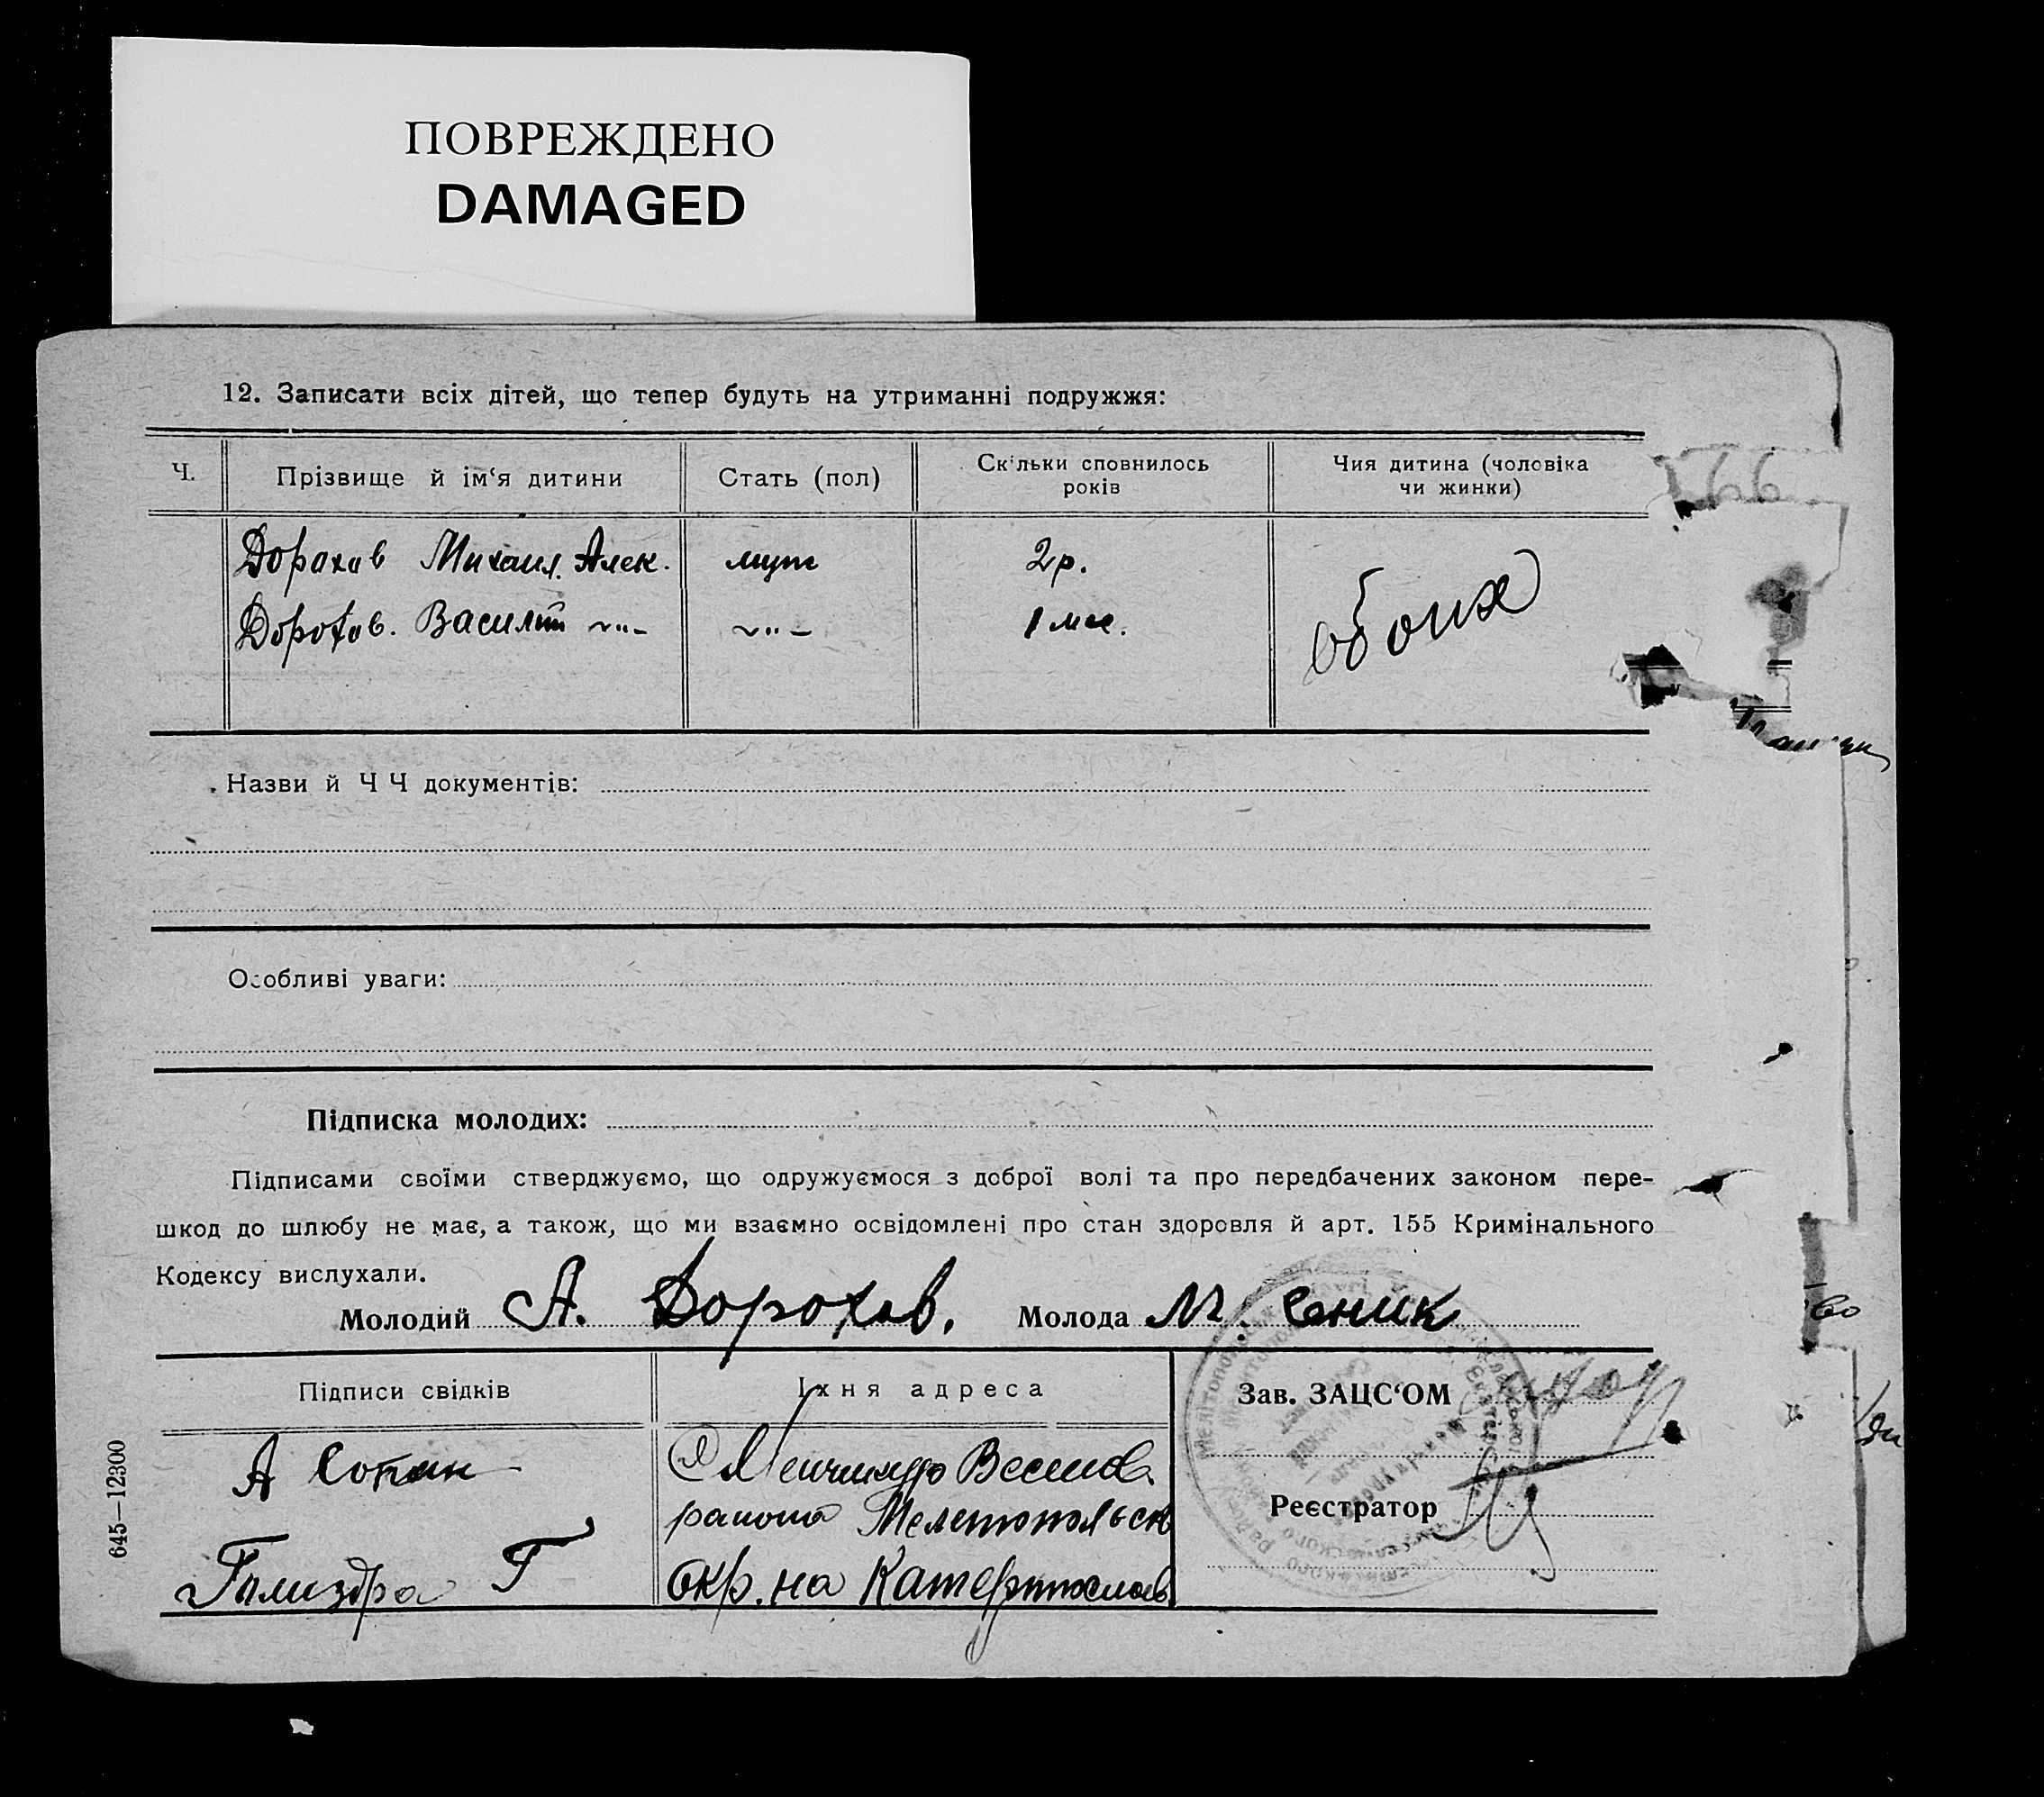 ПОВРЕЖДЕНО
DAMAGED
12. Записати всіх дітей, що тепер будуть на утриманні подружжя:
Ч. Прізвище й ім‘я дитини Стать (пол) Скільки сповнилось років Чия дитина (чоловіка чи жинки)
Дорохов Михаил. Алек. муж 2 р. обоих
Дорохов. Василий -"- -"- 1 мес.
Назви й Ч Ч документів:
Особливі уваги:
Підписка молодих:
Підписами своїми стверджуємо, що одружуємося з доброї волі та про передбачених законом пере-
шкод до шлюбу не має, а також, що ми взаємно освідомлені про стан здоровля й арт. 155 Кримінального
Кодексу вислухали.
Молодий А. Дорохов. Молода М. Еник
Підписи свідків Їхня адреса Зав. ЗАЦС‘ОМ
А
района Мелетопольск Реєстратор
Г
Окр. на
645—12300